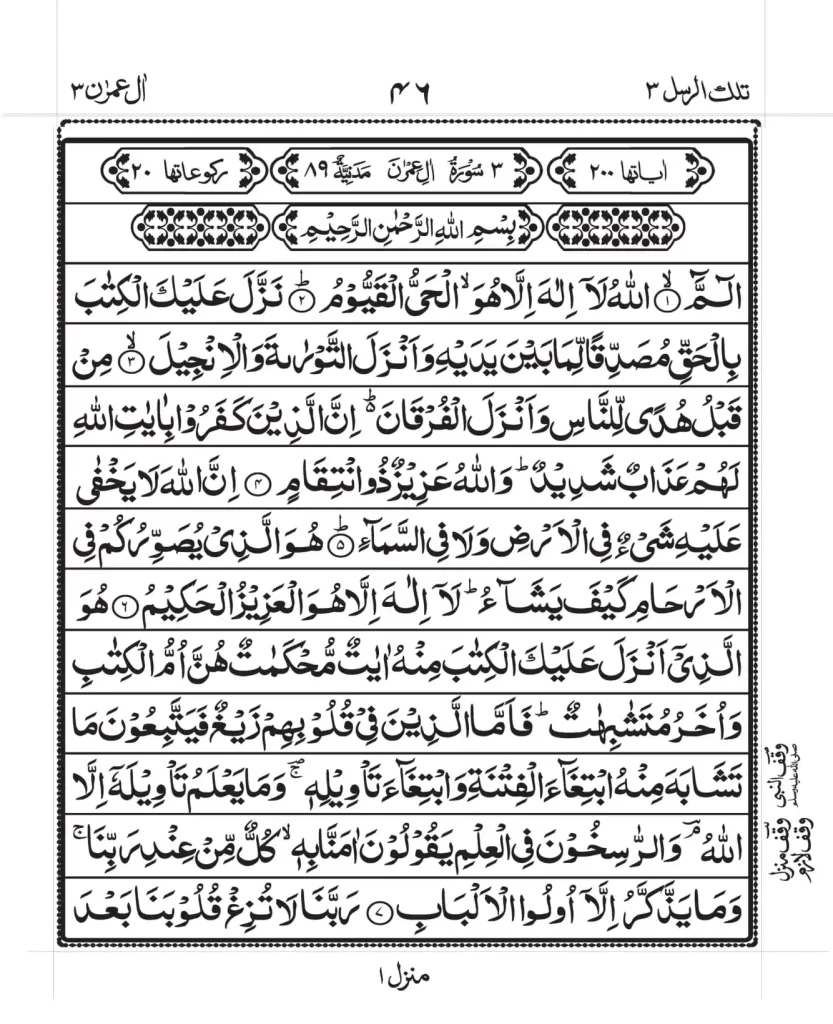 تلك الرسل ٣
٤٦
اٰل عمرٰن ٣
اٰیاتها ٢٠٠
٣ سُوْرَةُ اٰلِ عِمْرٰنَ مَدَنِيَّةٌ ٨٩
ركوعاتها ٢٠
بِسْمِ اللّٰهِ الرَّحْمٰنِ الرَّحِيْمِ
الٓمَّٓ ۙ﴿١﴾ اللّٰهُ لَاۤ اِلٰهَ اِلَّا هُوَ ۙ الْحَيُّ الْقَيُّوْمُ ؕ﴿٢﴾ نَزَّلَ عَلَيْكَ الْكِتٰبَ
بِالْحَقِّ مُصَدِّقًا لِّمَا بَيْنَ يَدَيْهِ وَاَنْزَلَ التَّوْرٰىةَ وَالْاِنْجِيْلَ ۙ﴿٣﴾ مِنْ
قَبْلُ هُدًى لِّلنَّاسِ وَاَنْزَلَ الْفُرْقَانَ ؕ۬ اِنَّ الَّذِيْنَ كَفَرُوْا بِاٰيٰتِ اللّٰهِ
لَهُمْ عَذَابٌ شَدِيْدٌ ؕ وَاللّٰهُ عَزِيْزٌ ذُو انْتِقَامٍ ﴿٤﴾ اِنَّ اللّٰهَ لَا يَخْفٰى
عَلَيْهِ شَيْءٌ فِي الْاَرْضِ وَلَا فِي السَّمَآءِ ؕ﴿٥﴾ هُوَ الَّذِيْ يُصَوِّرُكُمْ فِي
الْاَرْحَامِ كَيْفَ يَشَآءُ ؕ لَاۤ اِلٰهَ اِلَّا هُوَ الْعَزِيْزُ الْحَكِيْمُ ﴿٦﴾ هُوَ
الَّذِيْۤ اَنْزَلَ عَلَيْكَ الْكِتٰبَ مِنْهُ اٰيٰتٌ مُّحْكَمٰتٌ هُنَّ اُمُّ الْكِتٰبِ
وَاُخَرُ مُتَشٰبِهٰتٌ ؕ فَاَمَّا الَّذِيْنَ فِيْ قُلُوْبِهِمْ زَيْغٌ فَيَتَّبِعُوْنَ مَا
تَشَابَهَ مِنْهُ ابْتِغَآءَ الْفِتْنَةِ وَابْتِغَآءَ تَاْوِيْلِهٖ ۚ وَمَا يَعْلَمُ تَاْوِيْلَهٗۤ اِلَّا
اللّٰهُ ۘ وَالرّٰسِخُوْنَ فِي الْعِلْمِ يَقُوْلُوْنَ اٰمَنَّا بِهٖ ۙ كُلٌّ مِّنْ عِنْدِ رَبِّنَا ۚ
وَمَا يَذَّكَّرُ اِلَّاۤ اُولُوا الْاَلْبَابِ ﴿٧﴾ رَبَّنَا لَا تُزِغْ قُلُوْبَنَا بَعْدَ
وقف النبی صلی الله علیه وسلم
وقف منزل
وقف لازم
منزل ١